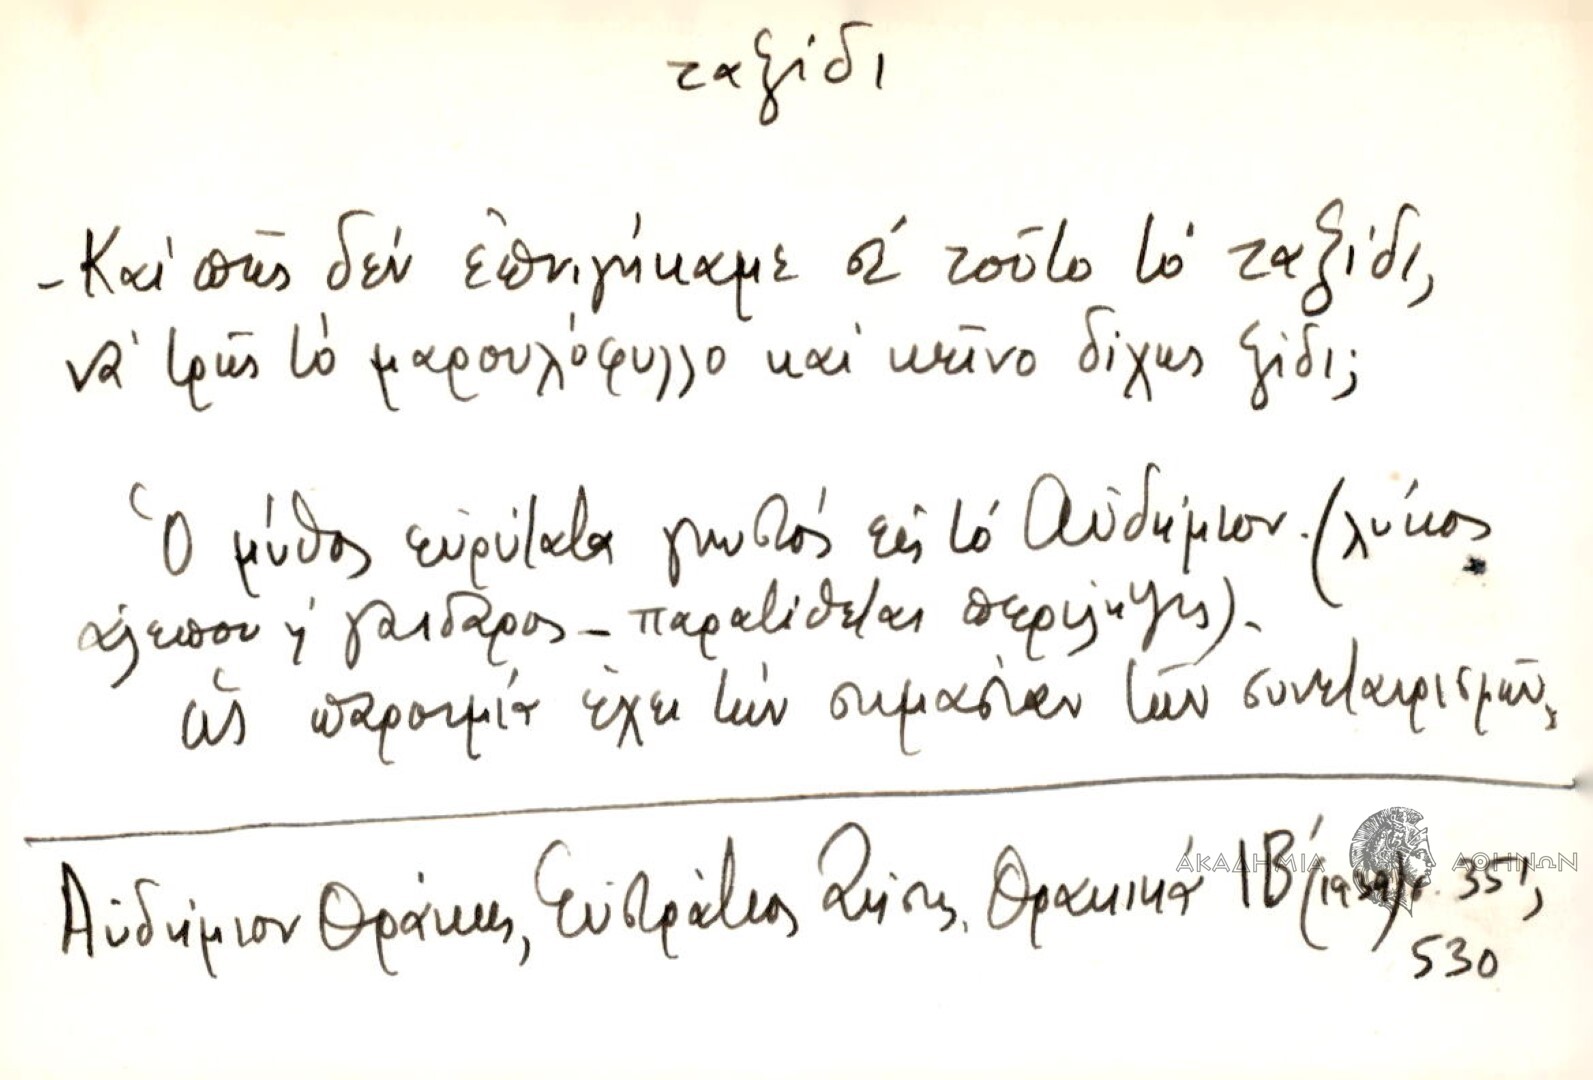 ταξίδι
- Καί πῶς δέν ἐπνιγήκαμε σέ τοῦτο τό ταξίδι,
νά τρῶς τό μαρουλόφυλλο καί κεῖνο δίχως ξίδι;
Ὁ μύθος εὐρύτατα γνωστός εἰς τό Αὐδήμιον. (λύκος
ἀλεπού ἤ γάιδαρος - παρατίθεται περίληψις).-
ὡς παροιμία ἔχει τήν σημασίαν τῶν συνεταιρισμῶν.
Αὐδήμιον Θράκης, Εὐστράτιος Ζήσης, Θρακικά ΙΒ΄ (1939) σ. 351,
530
ΑΚΑΔΗΜΙΑ ΑΘΗΝΩΝ